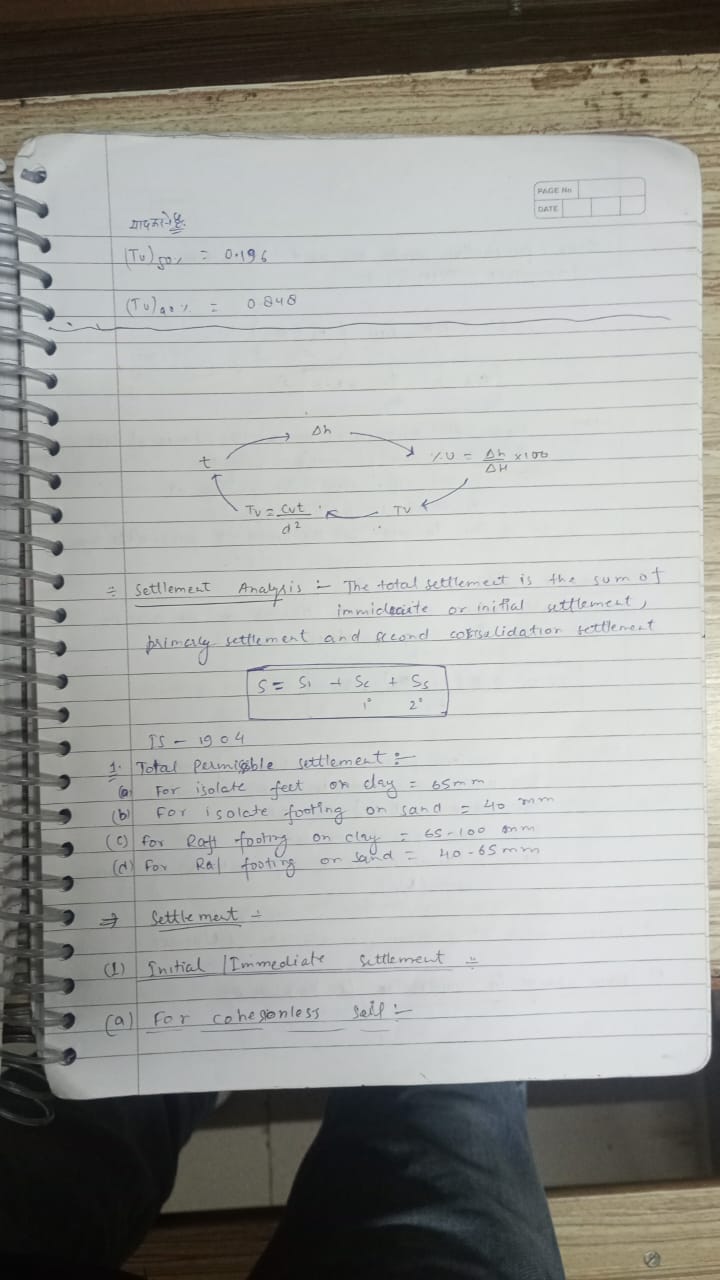 PAGE No
DATE
याद करने है.
(Tv)50% = 0.196
(Tv)90% = 0.848
Δh
t
%U = Δh/ΔH ×100
Tv = Cvt/d²
Tv
= Settlement Analysis :- The total settlement is the sum of
immideaite or initial settlement,
primary settlement and second consolidation settlement
S = Si + Sc + Ss
1° 2°
IS - 1904
1. Total permissible settlement :-
(a) For isolate feet on clay = 65mm
(b) For isolate footing on sand = 40 mm
(c) for Raft footing on clay = 65-100 mm
(d) For Raf footing on sand = 40-65mm
⇒ Settlement :-
(1) Initial / Immediate settlement :-
(a) For cohesionless soil :-